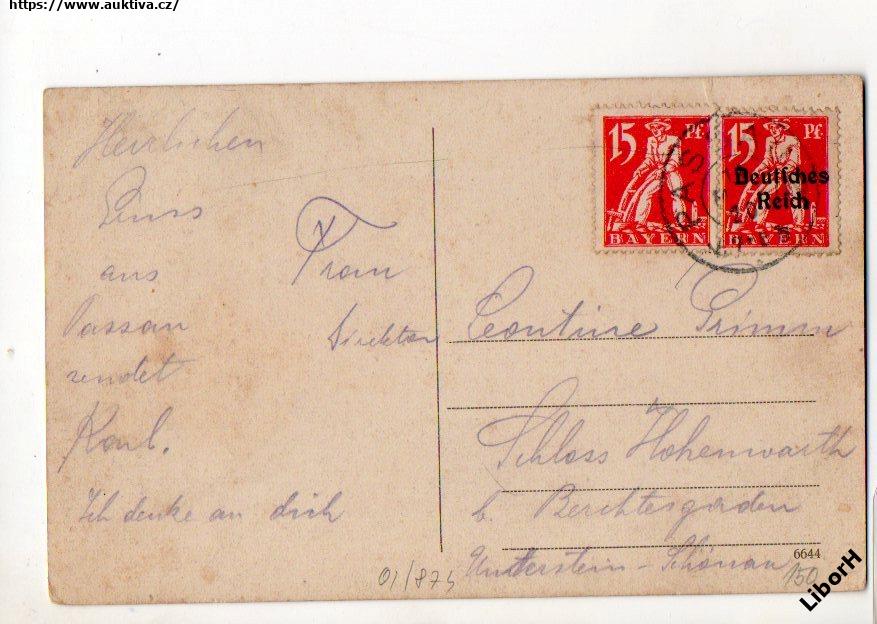 https://www.auktiva.cz/
15 Pf
BAYERN
15 Pf
Deutsches
Reich
BAYERN
PASS
20
Herzlichen
Gruss
aus
Passau
sendet
Karl.
Ich denke an dich
Frau
Direktor
Leontine Grimm
Schloss Hohenwarth
b. Berchtesgarden
Unterstein - Schönau
6644
01/874
150
LiborH